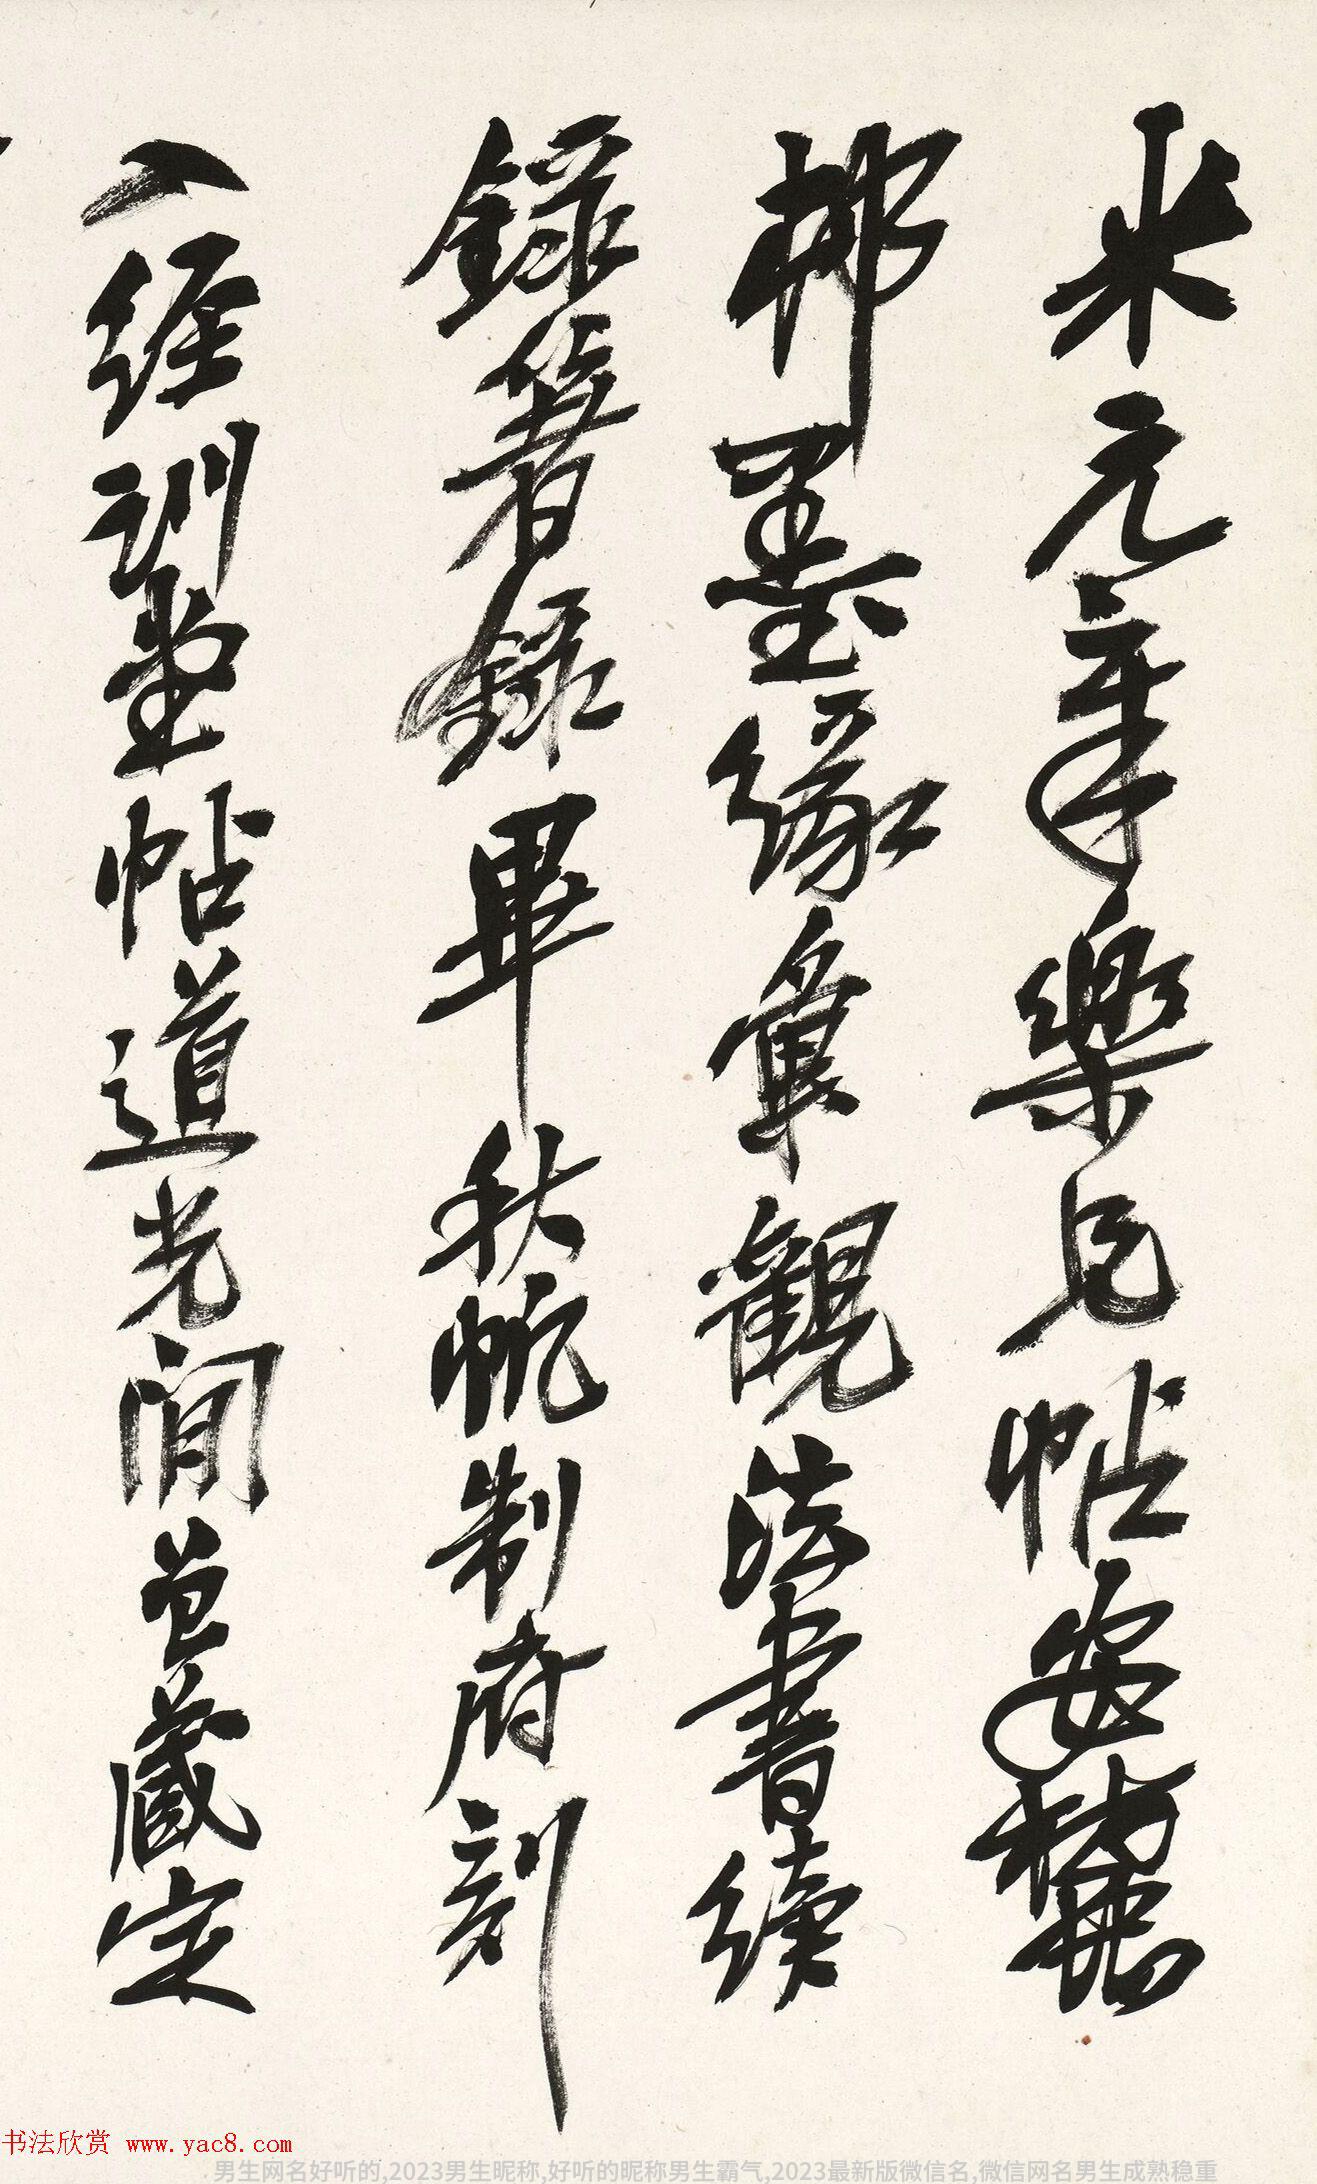 米元章樂兄帖安麓
邨墨緣彙觀法書續
錄著錄畢秋帆制府刻
入經訓堂帖道光間曾藏定
书法欣赏 www.yac8.com
男生网名好听的,2023男生昵称,好听的昵称男生霸气,2023最新版微信名,微信网名男生成熟稳重